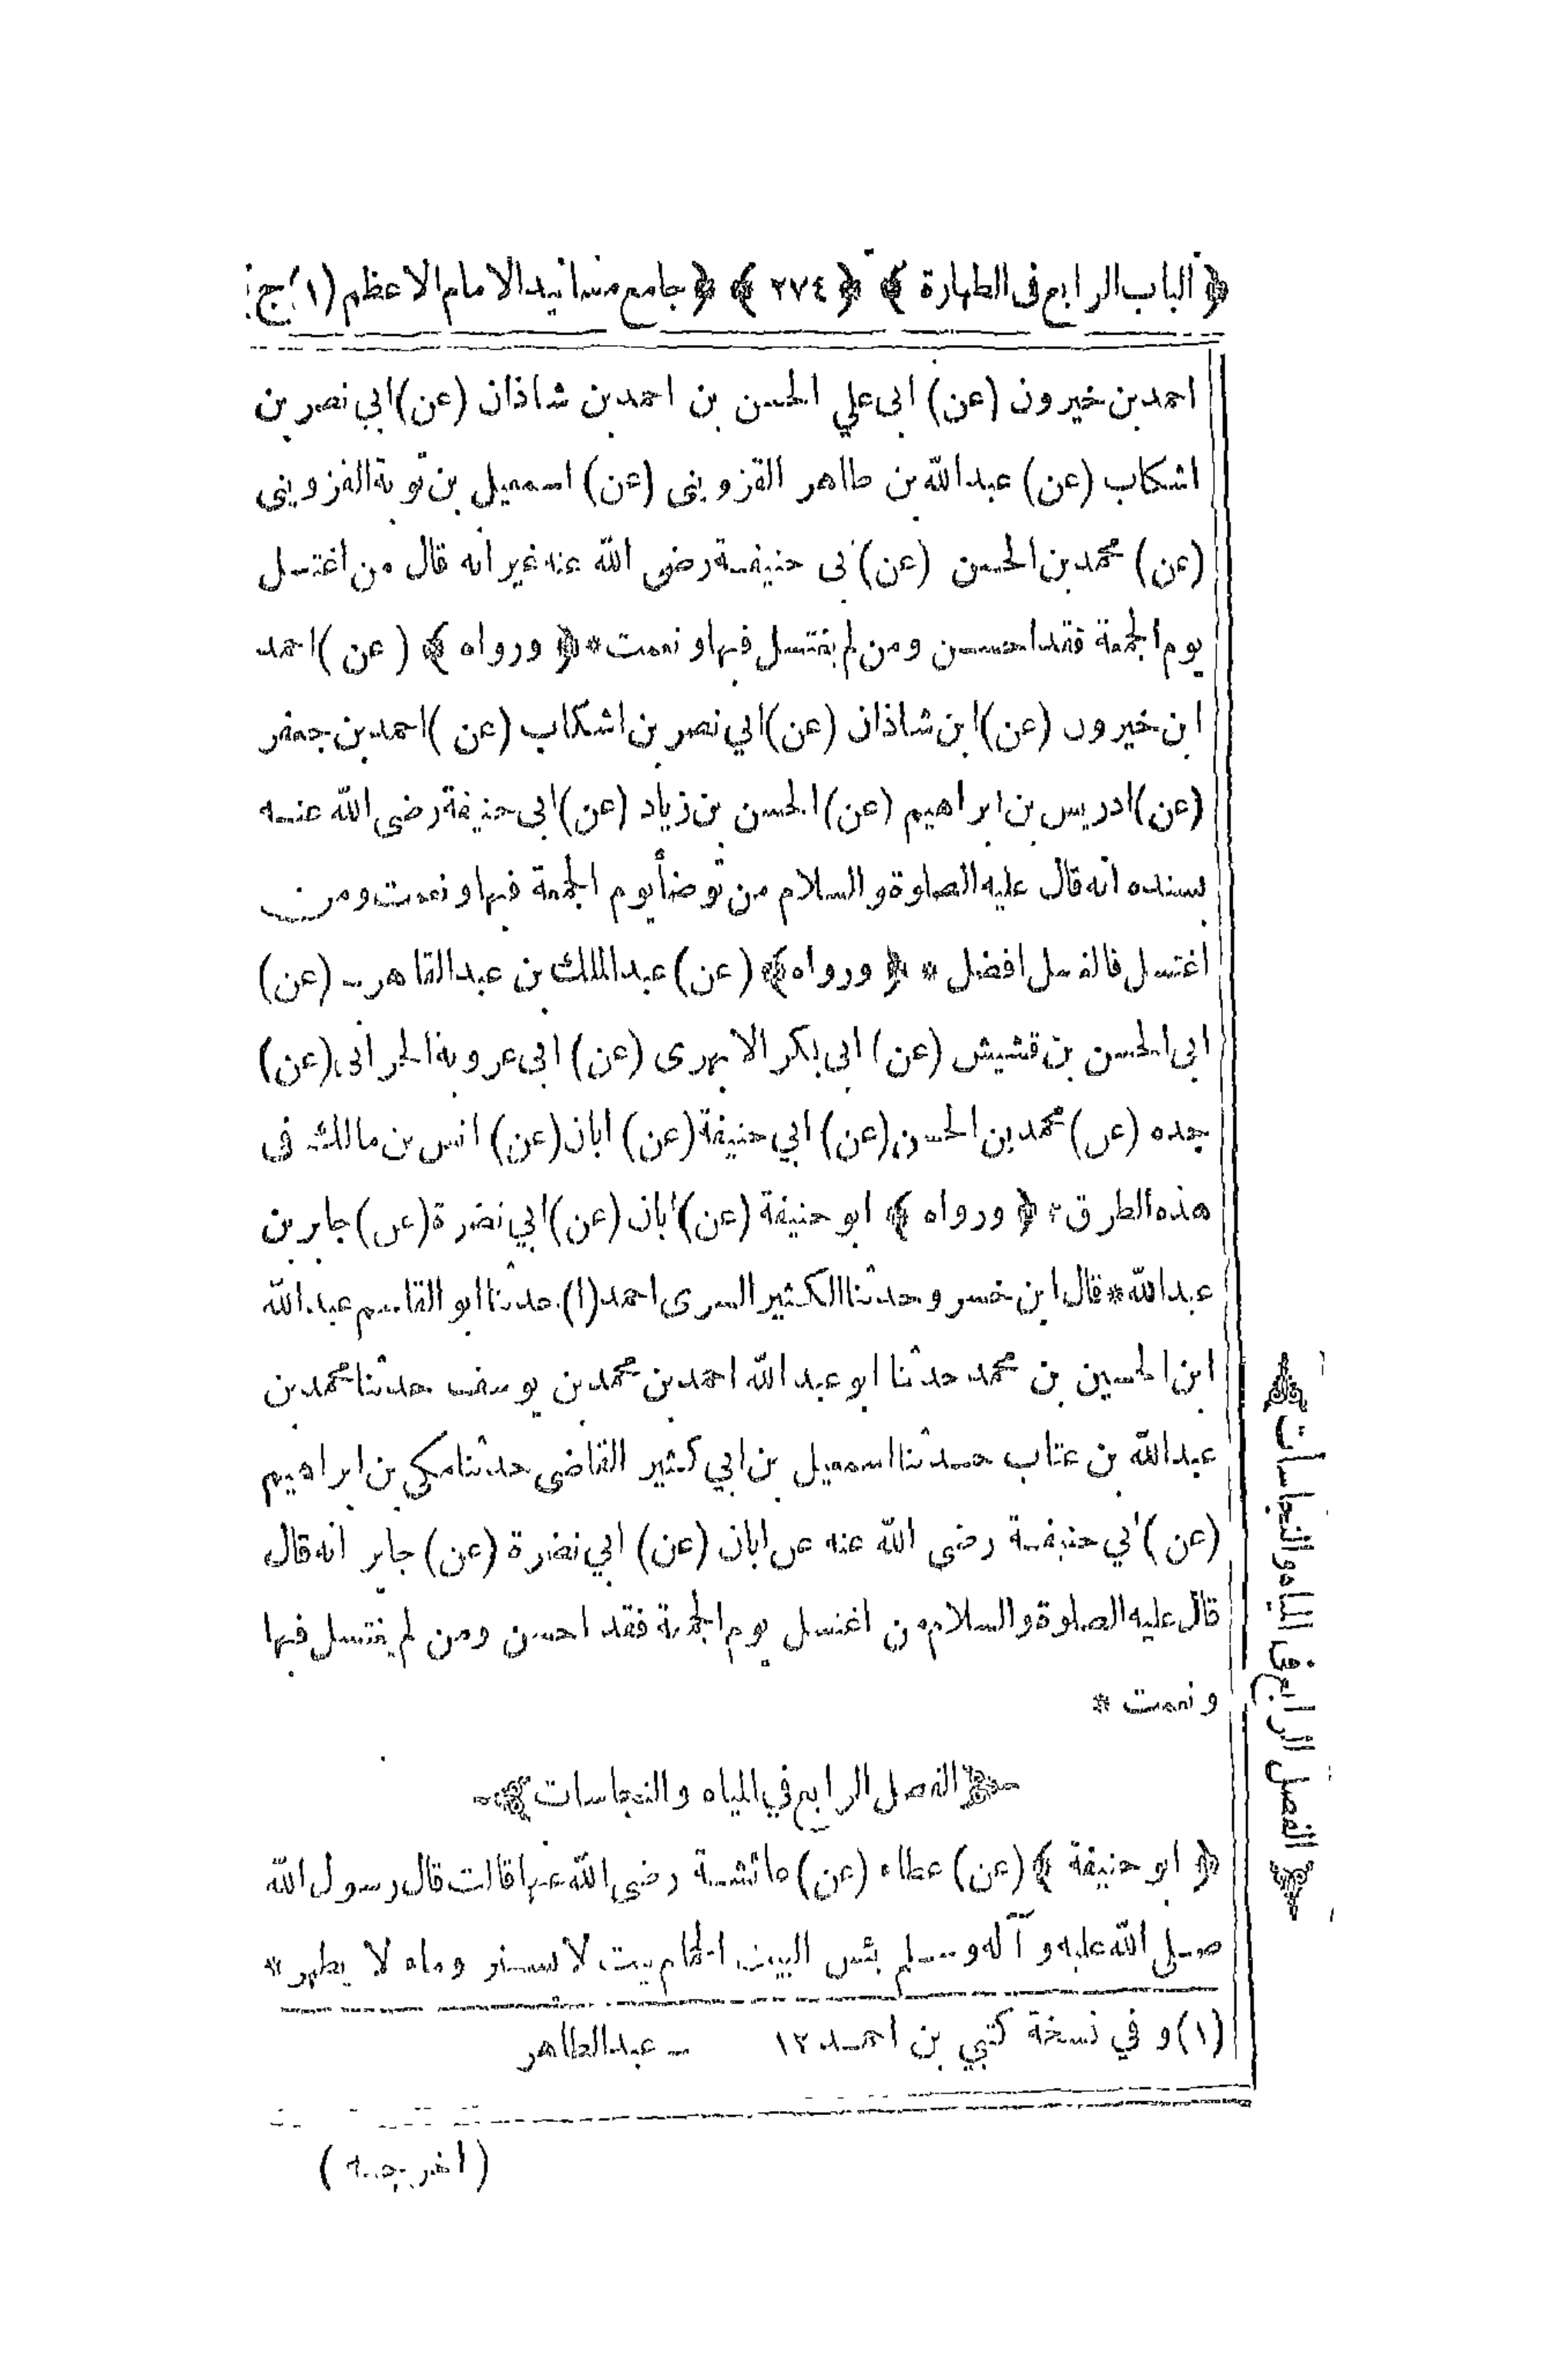 ﴿ الباب الرابع فى الطهارة ﴾ ﴿ ٢٧٤ ﴾ ﴿ جامع مسانيد الامام الاعظم (١) ج
احمد بن خيرون (عن) ابى علي الحسن بن احمد بن شاذان (عن) ابي نصر بن
اشكاب (عن) عبد الله بن طاهر القزوينى (عن) اسمعيل بن توبة القزوينى
(عن) محمد بن الحسن (عن) ابى حنيفة رضى الله عنه غير انه قال من اغتسل
يوم الجمعة فقد احسن ومن لم يغتسل فبها ونعمت * ﴿ ورواه ﴾ (عن) احمد
ابن خيرون (عن) ابن شاذان (عن) ابي نصر بن اشكاب (عن) احمد بن جعفر
(عن) ادريس بن ابراهيم (عن) الحسن بن زياد (عن) ابى حنيفة رضى الله عنه
بسنده انه قال عليه الصلوة والسلام من توضأ يوم الجمعة فبها ونعمت ومن
اغتسل فالغسل افضل * ﴿ ورواه ﴾ (عن) عبد الملك بن عبد القاهر ـ (عن)
ابى الحسن بن قشيش (عن) ابى بكر الابهرى (عن) ابى عروبة الحرانى (عن)
جده (عن) محمد بن الحسن (عن) ابي حنيفة (عن) ابان (عن) انس بن مالك فى
هذه الطرق * ﴿ ورواه ﴾ ابو حنيفة (عن) ابان (عن) ابي نضرة (عن) جابر بن
عبد الله * قال ابن خسرو حدثنا الكثير السرى احمد (١) حدثنا ابو القاسم عبد الله
ابن الحسين بن محمد حدثنا ابو عبد الله احمد بن محمد بن يوسف حدثنا محمد بن
عبد الله بن عتاب حدثنا اسمعيل بن ابي كثير القاضى حدثنا مكى بن ابراهيم
(عن) ابي حنيفة رضى الله عنه عن ابان (عن) ابي نضرة (عن) جابر انه قال
قال عليه الصلوة والسلام من اغتسل يوم الجمعة فقد احسن ومن لم يغتسل فبها
ونعمت *
الفصل الرابع في المياه والنجاسات
﴿ ابو حنيفة ﴾ (عن) عطاء (عن) عائشة رضى الله عنها قالت قال رسول الله
صلى الله عليه وآله وسلم بئس البيت الحمام بيت لا يستر وماء لا يطهر *
(١) و في نسخة كتبي بن احمد ١٢ ـ عبد الطاهر
(اخرجه)
الفصل الرابع فى المياه والنجاسات